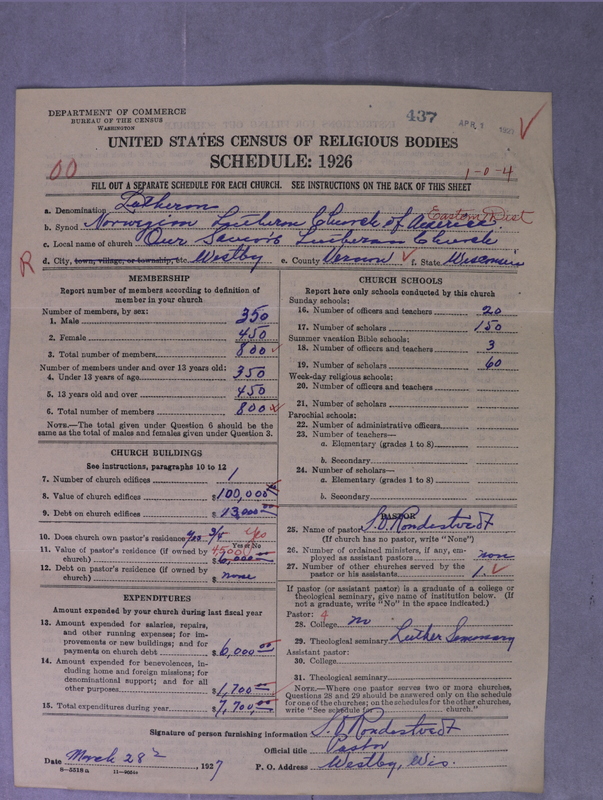 DEPARTMENT OF COMMERCE
BUREAU OF THE CENSUS
WASHINGTON
437
APR 1 1927
UNITED STATES CENSUS OF RELIGIOUS BODIES
SCHEDULE: 1926
00
1-0-4
FILL OUT A SEPARATE SCHEDULE FOR EACH CHURCH. SEE INSTRUCTIONS ON THE BACK OF THIS SHEET
a. Denomination Lutheran
b. Synod Norwegian Lutheran Church of America. Eastern Dist
c. Local name of church Our Savior's Lutheran Church
d. City, town, village, or township, etc. Westby e. County Vernon f. State Wisconsin
R
MEMBERSHIP
Report number of members according to definition of
member in your church
Number of members, by sex:
1. Male 350
2. Female 450
3. Total number of members 800
Number of members under and over 13 years old:
4. Under 13 years of age 350
5. 13 years old and over 450
6. Total number of members 800
NOTE.—The total given under Question 6 should be
same as the total of males and females given under Question 3.
CHURCH BUILDINGS
See instructions, paragraphs 10 to 12
7. Number of church edifices 1
8. Value of church edifices $100,000.00
9. Debt on church edifices $13,000.00
10. Does church own pastor's residence? yes 3/4 yes
Yes or No
11. Value of pastor's residence (if owned by
church) 4500 $6,000.00
12. Debt on pastor's residence (if owned by
church) $ none
EXPENDITURES
Amount expended by your church during last fiscal year
13. Amount expended for salaries, repairs,
and other running expenses; for im-
provements or new buildings; and for
payments on church debt $6,000.00
14. Amount expended for benevolences, in-
cluding home and foreign missions; for
denominational support; and for all
other purposes $1,700.00
15. Total expenditures during year $7,700.00
CHURCH SCHOOLS
Report here only schools conducted by this church
Sunday schools:
16. Number of officers and teachers 20
17. Number of scholars 150
Summer vacation Bible schools:
18. Number of officers and teachers 3
19. Number of scholars 60
Week-day religious schools:
20. Number of officers and teachers
21. Number of scholars
Parochial schools:
22. Number of administrative officers
23. Number of teachers—
a. Elementary (grades 1 to 8)
b. Secondary
24. Number of scholars—
a. Elementary (grades 1 to 8)
b. Secondary
PASTOR
25. Name of pastor S. O. Rondestvedt
(If church has no pastor, write "None")
26. Number of ordained ministers, if any, em-
ployed as assistant pastors none
27. Number of other churches served by the
pastor or his assistants 1.
If pastor (or assistant pastor) is a graduate of a college or
theological seminary, give name of institution below. (If
not a graduate, write "No" in the space indicated.)
Pastor: 4
28. College no
29. Theological seminary Luther Seminary
Assistant pastor:
30. College
31. Theological seminary
NOTE.—Where one pastor serves two or more churches,
Questions 28 and 29 should be answered only on the schedule
for one of the churches; on the schedules for the other churches,
write "See schedule for church."
Signature of person furnishing information S. O. Rondestvedt
Official title Pastor
Date March 28th, 1927 P. O. Address Westby, Wis.
8-5518a 11-9054